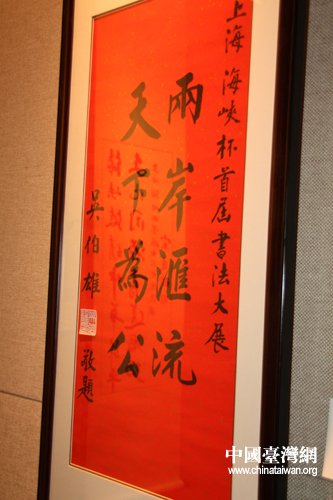 上海海峽杯首届書法大展
兩岸滙流
天下為公
吳伯雄
敬題
中國臺灣網
www.chinataiwan.org